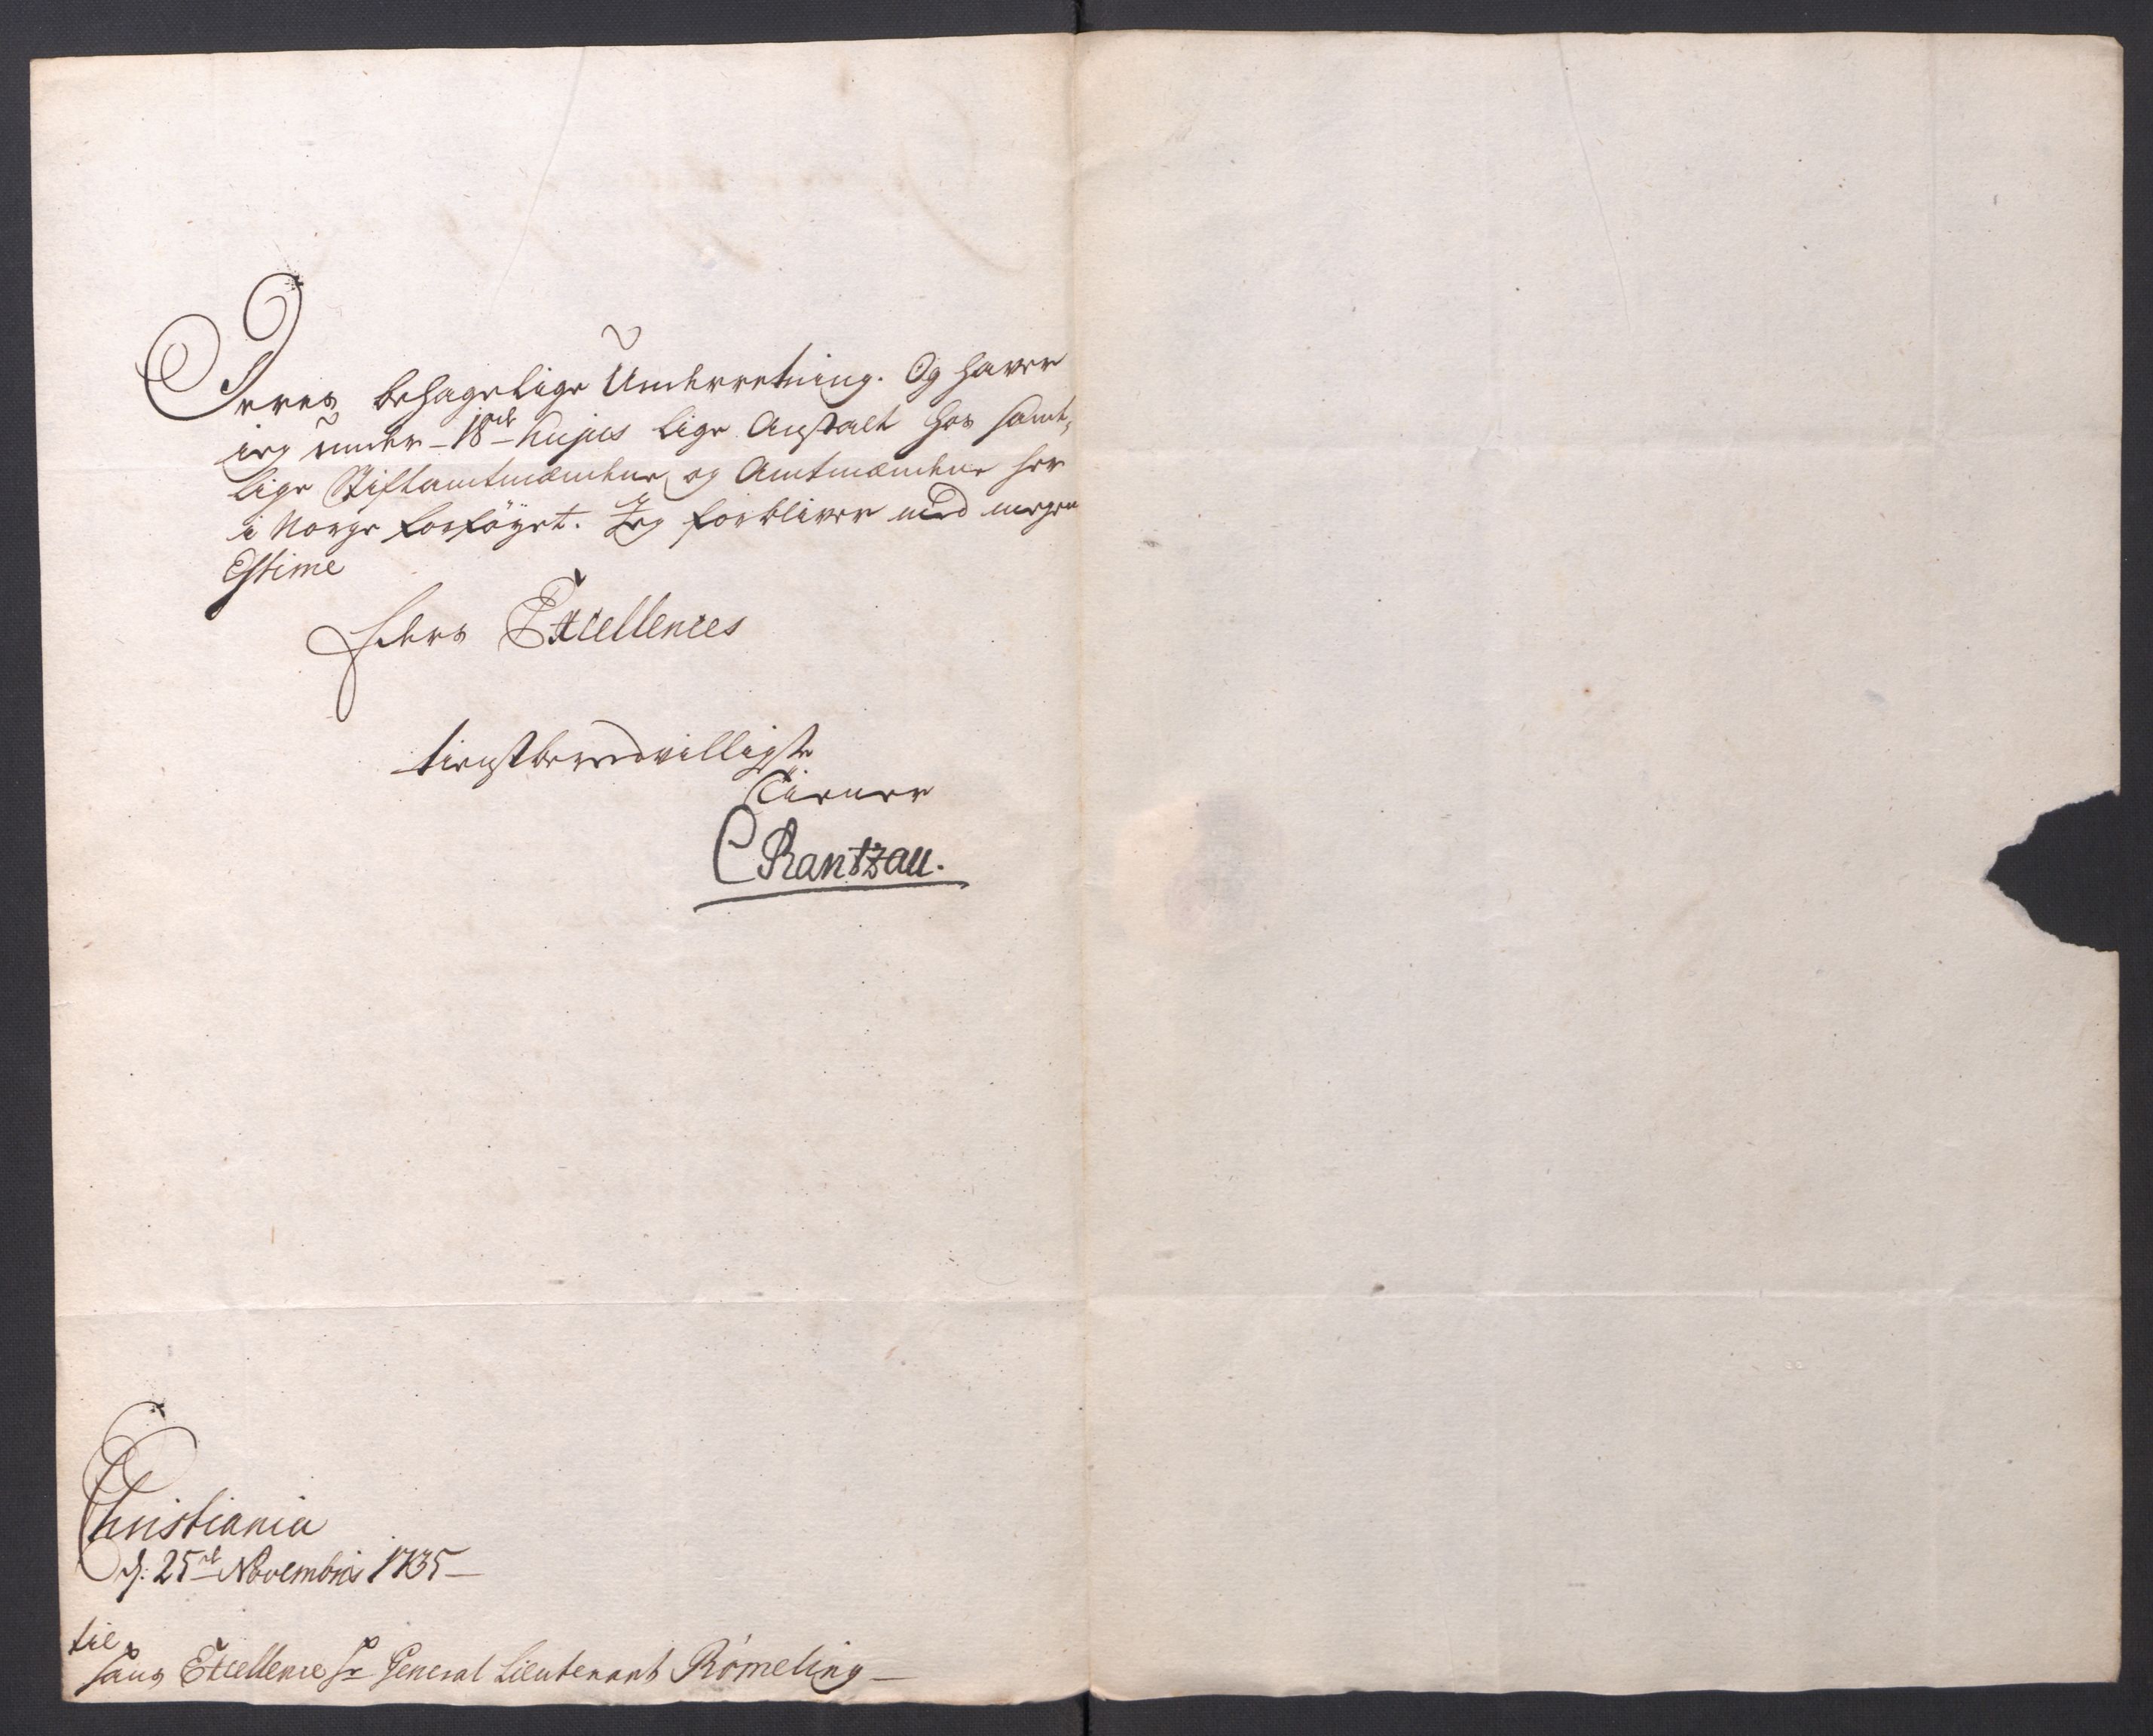 Deres behagelige Underretning. Og haver
ieg under 18de hujus lige Anstalt hos samt,
lige Stiftamtmændene og Amtmændene her
i Norge forföyet. Jeg forbliver med megen
Estime
Eders Excellences
tienstbereedvilligste
Tienere
CRantzau.
Christiania
d: 25de Novembris 1735
til
Hans Excellence Hr General Lieutenant Römeling